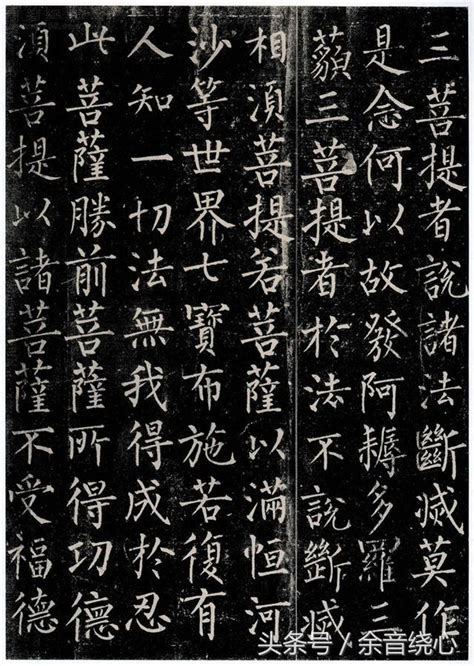 三菩提者說諸法斷滅莫作
是念何以故發阿耨多羅三
藐三菩提者於法不說斷滅
相須菩提若菩薩以滿恒河
沙等世界七寶布施若復有
人知一切法無我得成於忍
此菩薩勝前菩薩所得功德
須菩提以諸菩薩不受福德
头条号 / 余音绕心